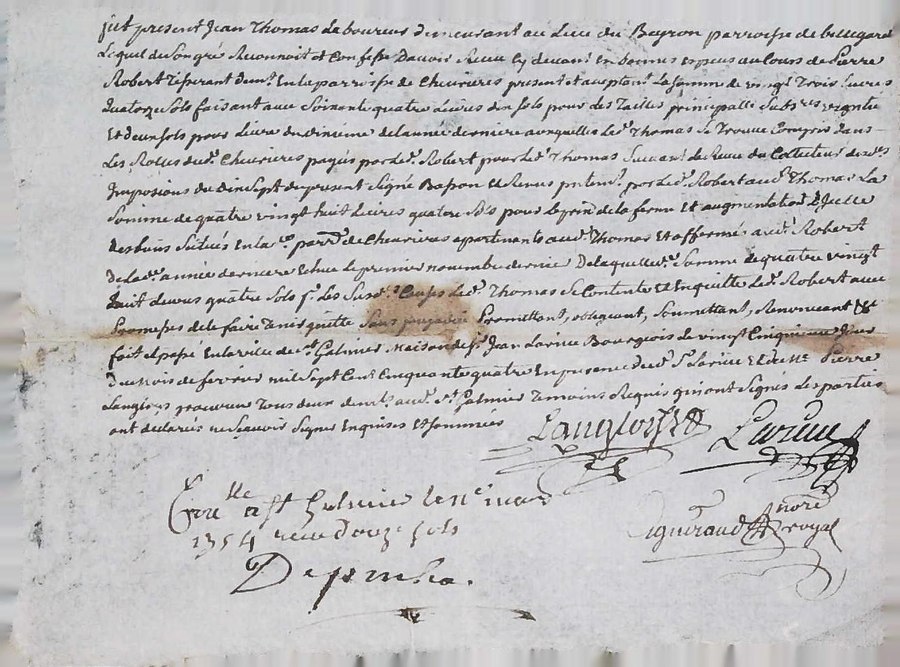 fut present Jean Thomas laboureur demeurant au Lieu du Beyron parroisse de bellegarde
Lequel de son gré Reconnoit et Confesse Davoir Receu Cy devant En bonnes especes au Cours de Pierre
Robert Tisserant demt. En la parroisse de Chevrieres present et acceptant La somme de vingt Trois Livres
quatorze Sols faisant avec Soixante quatre Livres dix sols pour des Tailles principalle
Et deux sols pour Livre du dixieme de lannée derniere auxquelles led. Thomas Se Trouve Compris dans
Les Rolles dud. Chevrieres payés par led. Robert pour led. Thomas Suivant Le Receu du Collecteur desd.
Impositions du dix Sept du present Signé Basson Et Revenus par led. Robert aud. Thomas La
Somme de quatre vingt huit Livres quatre Sols pour Le prix de la ferme Et augmentation d'jcelle
des biens Situés En lad. parr. de Chevrieres apartenants aud. Thomas Et affermés aud. Robert
De lad. année derniere Echue Le premier novembre dernier De laquelle Somme de quatre vingt
huit Livres quatre Sols Led. Thomas Se Contente Et En quitte Led. Robert avec
Promesses de le faire Tenir quitte Sans prejudice Promettant, obligeant, Soumettant, Renonceant &
fait Et passé En la ville de St. Galmier Maison de Sr. Jean Larive Bourgeois Le vingt Cinquieme Jour
Du mois de fevrier mil Sept Cent Cinquante quatre En presence dud. Sr. Larive Et de Me. Pierre
Langlois procureur Tous deux demts. aud. St. Galmier Temoins Requis qui ont Signés Les parties
ont declarées ne Scavoir Signer Enquises Et Sommées
Langlois Larive
Croullé a St Galmier le mars
1754 Receu douze sols
Signeraud Nore royal